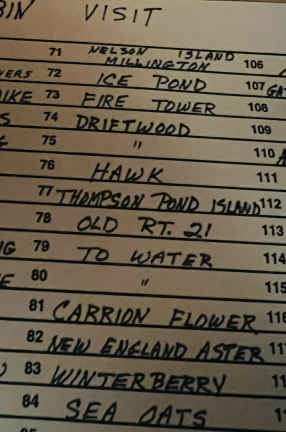 BIN VISIT
71 NELSON ISLAND MILLINGTON 106
WERS 72 ICE POND 107 GA
IKE 73 FIRE TOWER 108
S 74 DRIFTWOOD 109
75 " 110
76 HAWK 111
77 THOMPSON POND ISLAND 112
78 OLD RT. 21 113
NG 79 TO WATER 114
KE 80 " 115
81 CARRION FLOWER 116
82 NEW ENGLAND ASTER 117
83 WINTERBERRY 11
84 SEA OATS 1